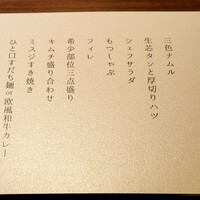 三色ナムル
生芯タンと厚切りハツ
シェフサラダ
もつしゃぶ
フィレ
希少部位三点盛り
キムチ盛り合わせ
ミスジすき焼き
ひと口すだち麺or欧風和牛カレー